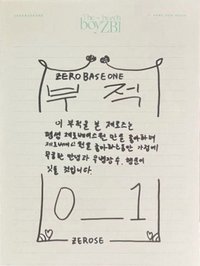 The beach
boyZB1
ZEROBASEONE
부 적
이 부적을 본 제로즈는
평생 제로베이스원 만을 좋아하며
제로베이스 원을 좋아하는동안 가정에
무궁한 안녕과 무병장수, 행운이
깃들 것입니다.
0 _ 1
ZEROSE